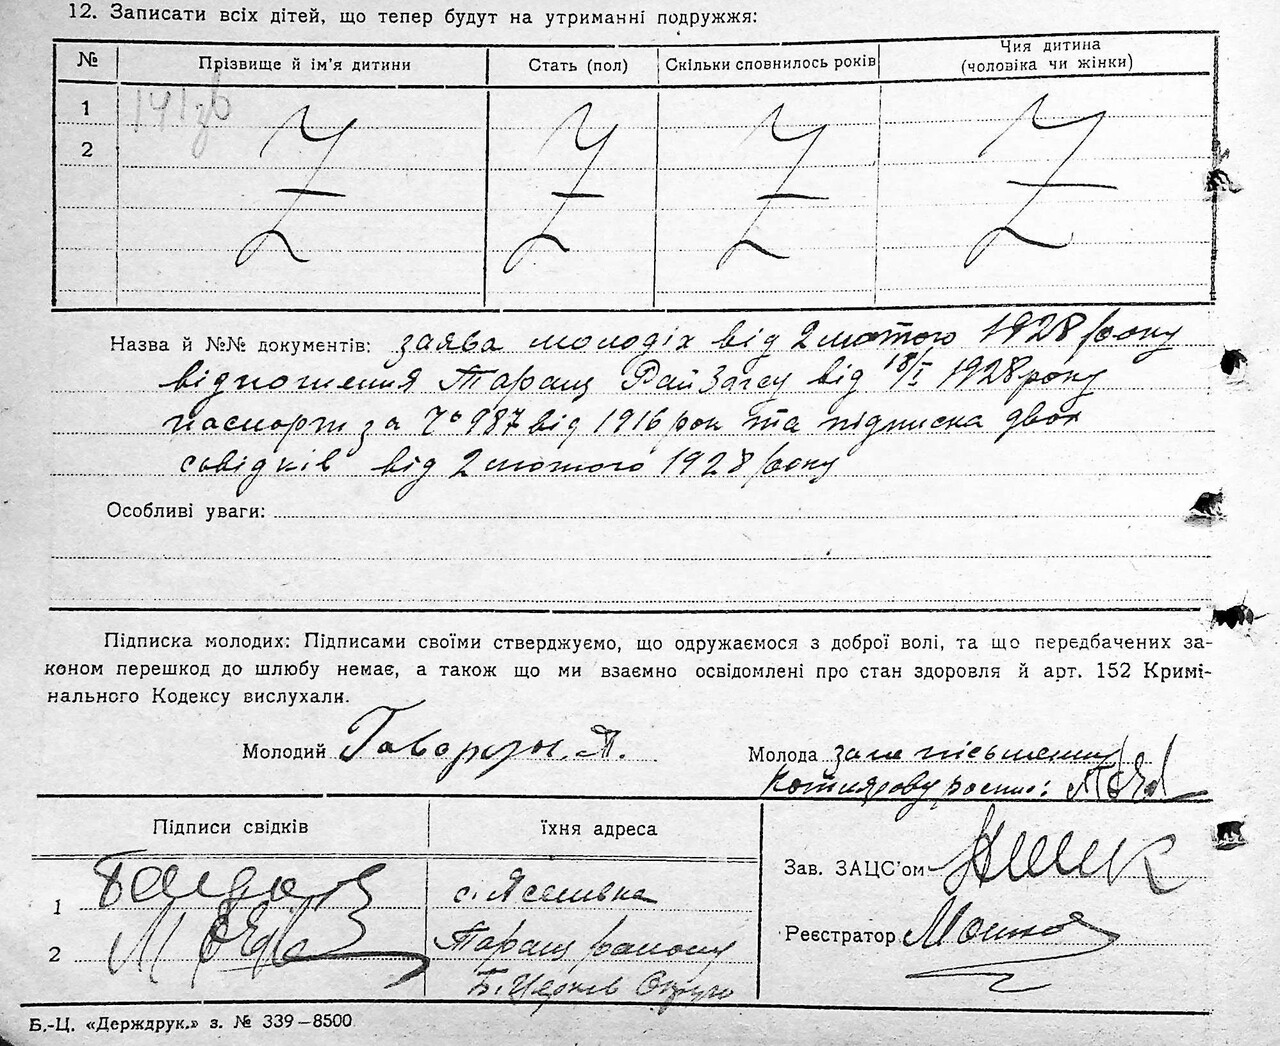 12. Записати всіх дітей, що тепер будут на утриманні подружжя:
№ Прізвище й ім'я дитини Стать (пол) Скільки сповнилось років Чия дитина (чоловіка чи жінки)
1
2
Назва й №№ документів: заява молодіх від 2 лютого 1928 року
відношення Таращ РайЗагсу від 18/I 1928 року
паспорти за № 987 від 1916 рок та підписка двох
свідків від 2 лютого 1928 року
Особливі уваги:
Підписка молодих: Підписами своїми стверджуємо, що одружаємося з доброї волі, та що передбачених за-
коном перешкод до шлюбу немає, а також що ми взаємно освідомлені про стан здоровля й арт. 152 Кримі-
нального Кодексу вислухали.
Молодий
Молода
Підписи свідків їхня адреса
Зав. ЗАЦС'ом
1 с. Ясенівка
Реєстратор
2 Таращ району
Б. Церків Округи
Б.-Ц. «Держдрук.» з. № 339—8500